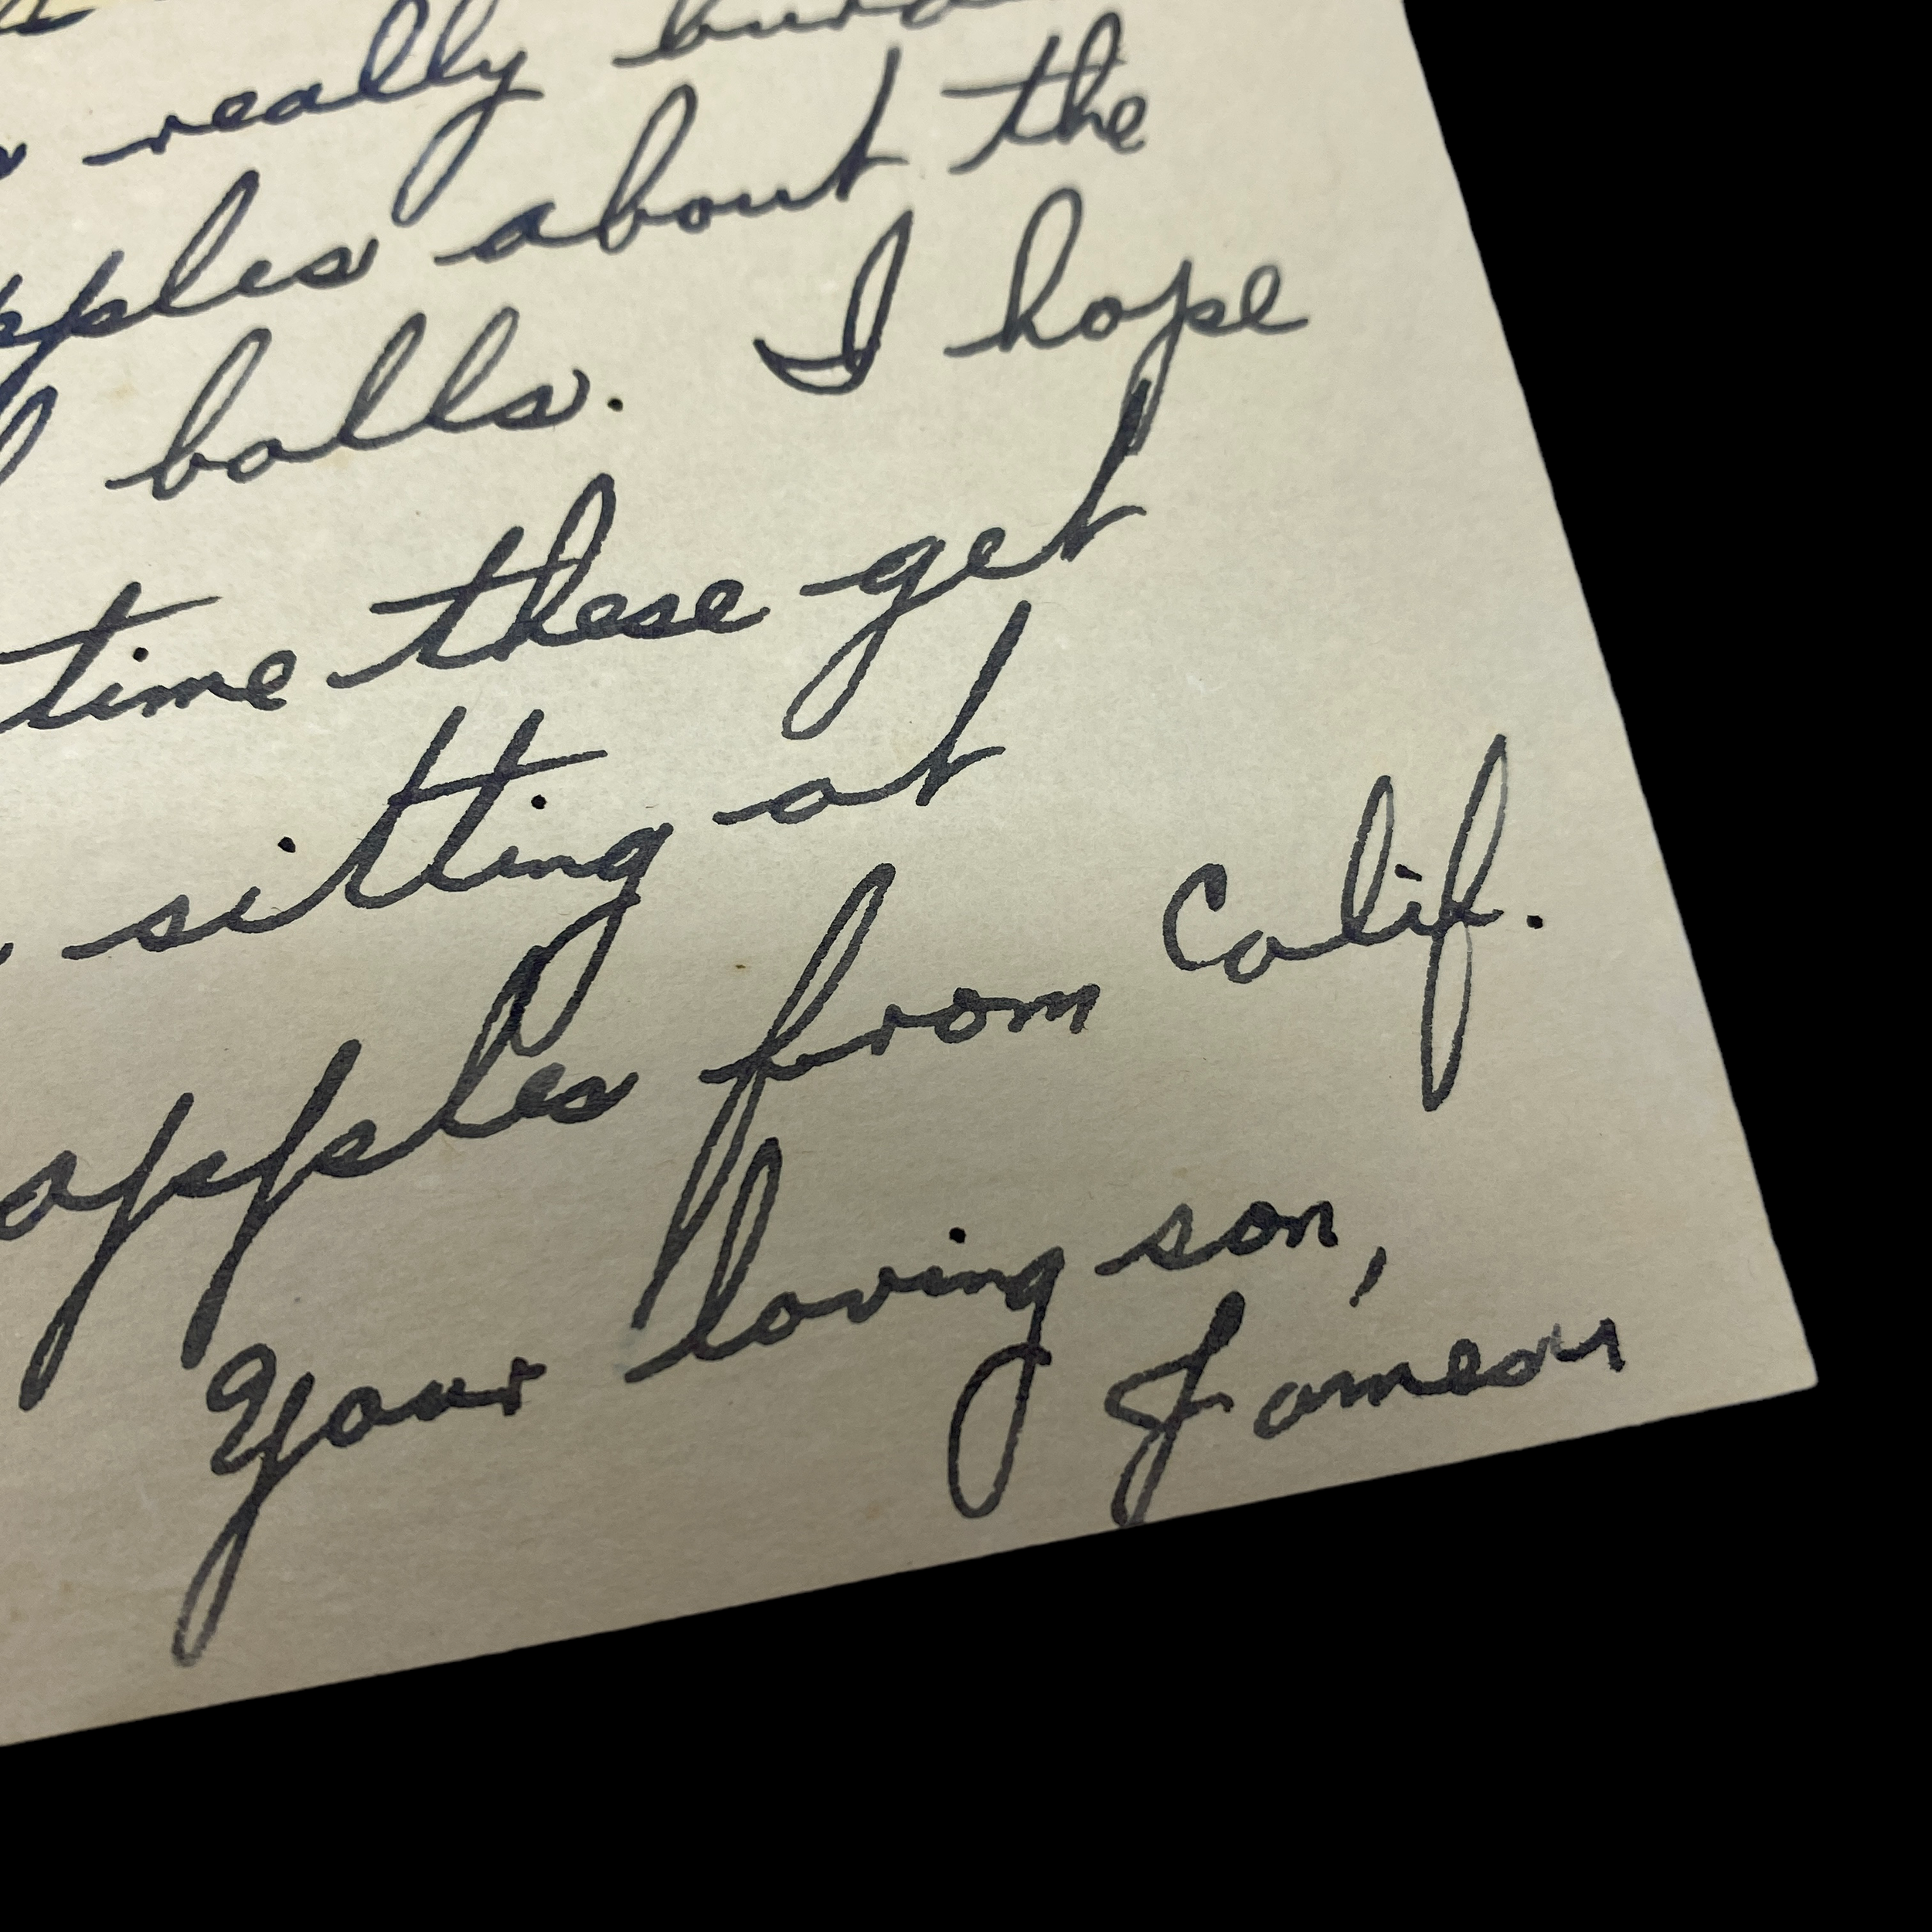 really
about the
balls. I hope
time these get
sitting at
apples from Calif.
Your loving son,